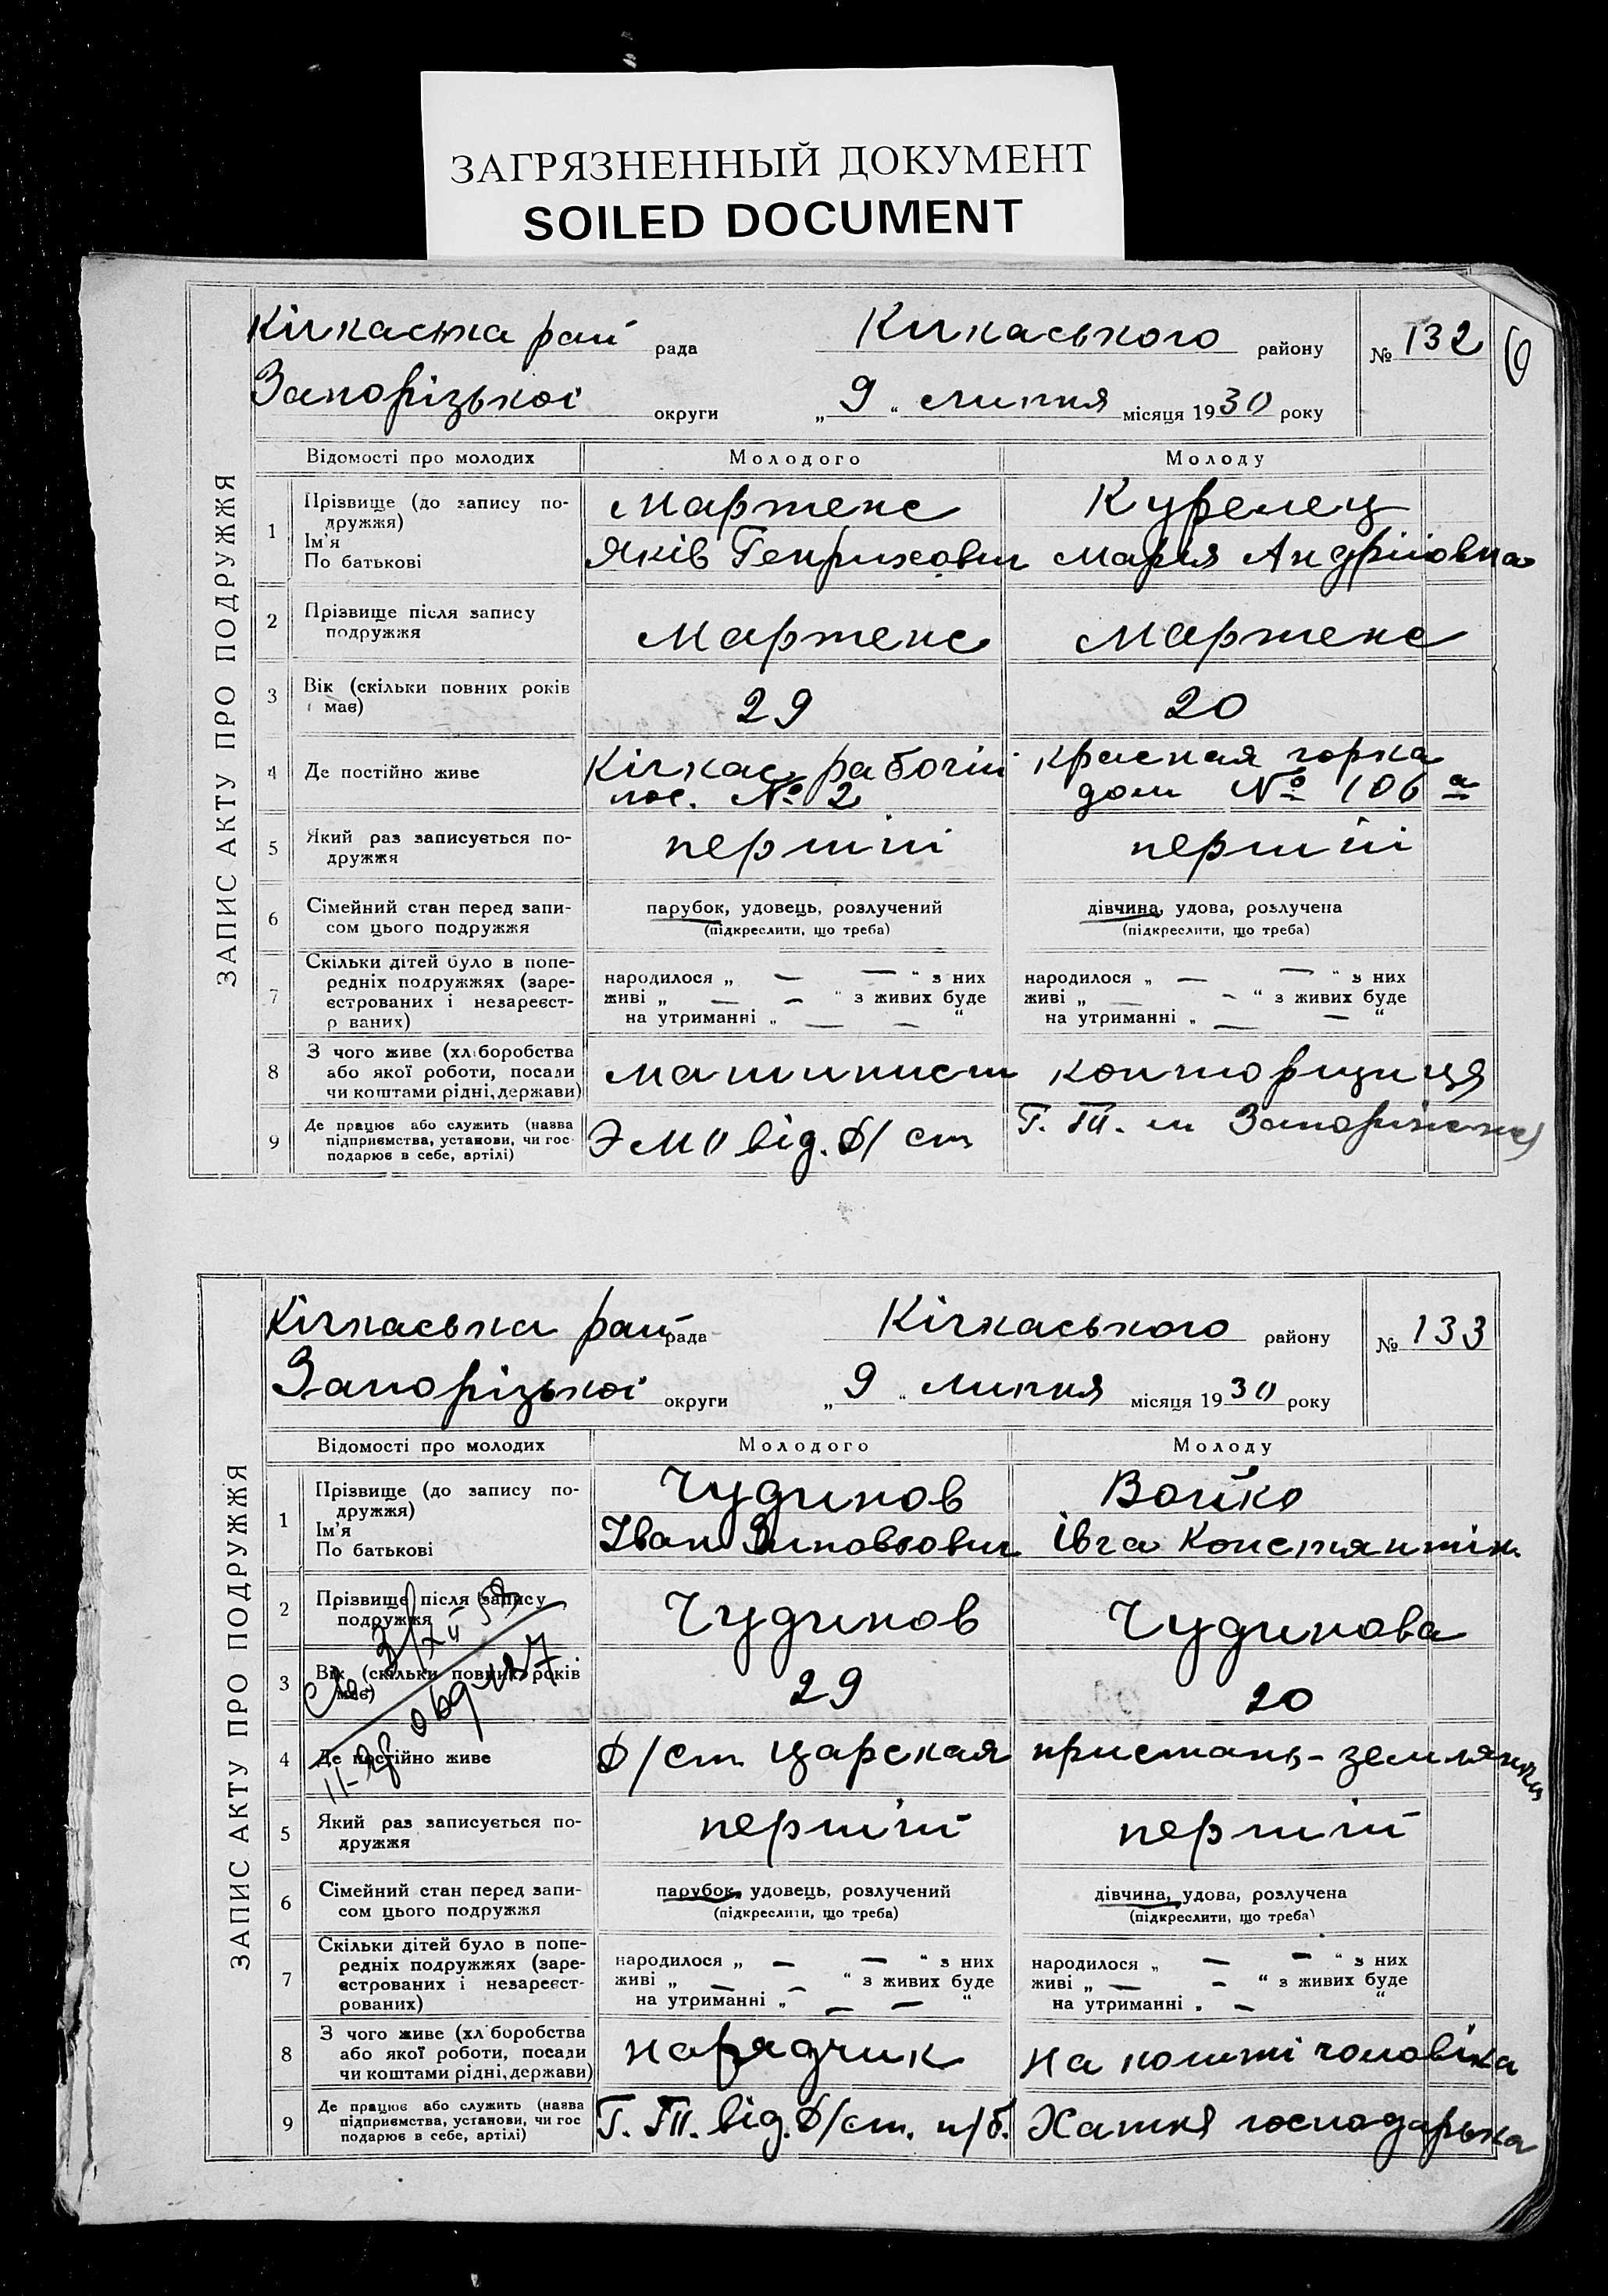 ЗАГРЯЗНЕННЫЙ ДОКУМЕНТ
SOILED DOCUMENT
ЗАПИС АКТУ ПРО ПОДРУЖЖЯ
Кічкаська рай рада Кічкаського району № 132
Запорізької округи „ 9 “ липня місяця 1930 року
6
Відомості про молодих Молодого Молоду
1 Прізвище (до запису по-
дружжя)
Ім'я
По батькові
Мартенс Курелец
Яків Генрихович Марія Андріївна
2 Прізвище після запису
подружжя
Мартенс Мартенс
3 Вік (скільки повних років
має)
29 20
4 Де постійно живе
Кічкас, рабочій красная горка
пос. № 2 дом № 106 а
5 Який раз записується по-
дружжя
перший перший
6 Сімейний стан перед запи-
сом цього подружжя
парубок, удовець, розлучений дівчина, удова, розлучена
(підкреслити, що треба) (підкреслити, що треба)
7 Скільки дітей було в попе-
редніх подружжях (заре-
єстрованих і незареєст-
р ваних)
народилося „ — — “ з них народилося „ — — “ з них
живі „ — — “ з живих буде живі „ — — “ з живих буде
на утриманні „ — — “ на утриманні „ — — “
8 З чого живе (хл боробства
або якої роботи, посади
чи коштами рідні, держави)
машинист конторщиця
9 Де працює або служить (назва
підприємства, установи, чи гос-
подарює в себе, артілі)
від. Д/ ст Г. П. м Запоріжжя
ЗАПИС АКТУ ПРО ПОДРУЖЖЯ
Кічкаська рай рада Кічкаського району № 133
Запорізької округи „ 9 “ липня місяця 1930 року
Відомості про молодих Молодого Молоду
1 Прізвище (до запису по-
дружжя)
Ім'я
По батькові
Чудинов Бойко
Іван Зиновьович Івга Констянтін.
2 Прізвище після запису
подружжя
Чудинов Чудинова
3 Вік (скільки повних років
має)
29 20
4 Де постійно живе
Д/ст царская пристань - землянки
5 Який раз записується по-
дружжя
перший перший
6 Сімейний стан перед запи-
сом цього подружжя
парубок, удовець, розлучений дівчина, удова, розлучена
(підкреслити, що треба) (підкреслити, що треба)
7 Скільки дітей було в попе-
редніх подружжях (заре-
єстрованих і незареєст-
рованих)
народилося „ — — “ з них народилося „ — — “ з них
живі „ — — “ з живих буде живі „ — — “ з живих буде
на утриманні „ — — “ на утриманні „ — “
8 З чого живе (хл боробства
або якої роботи, посади
чи коштами рідні, держави)
нарядчик на кошті чоловіка
9 Де працює або служить (назва
підприємства, установи, чи гос
подарює в себе, артілі)
Г. П. від. Д/ст. п/б. Хатня господарька